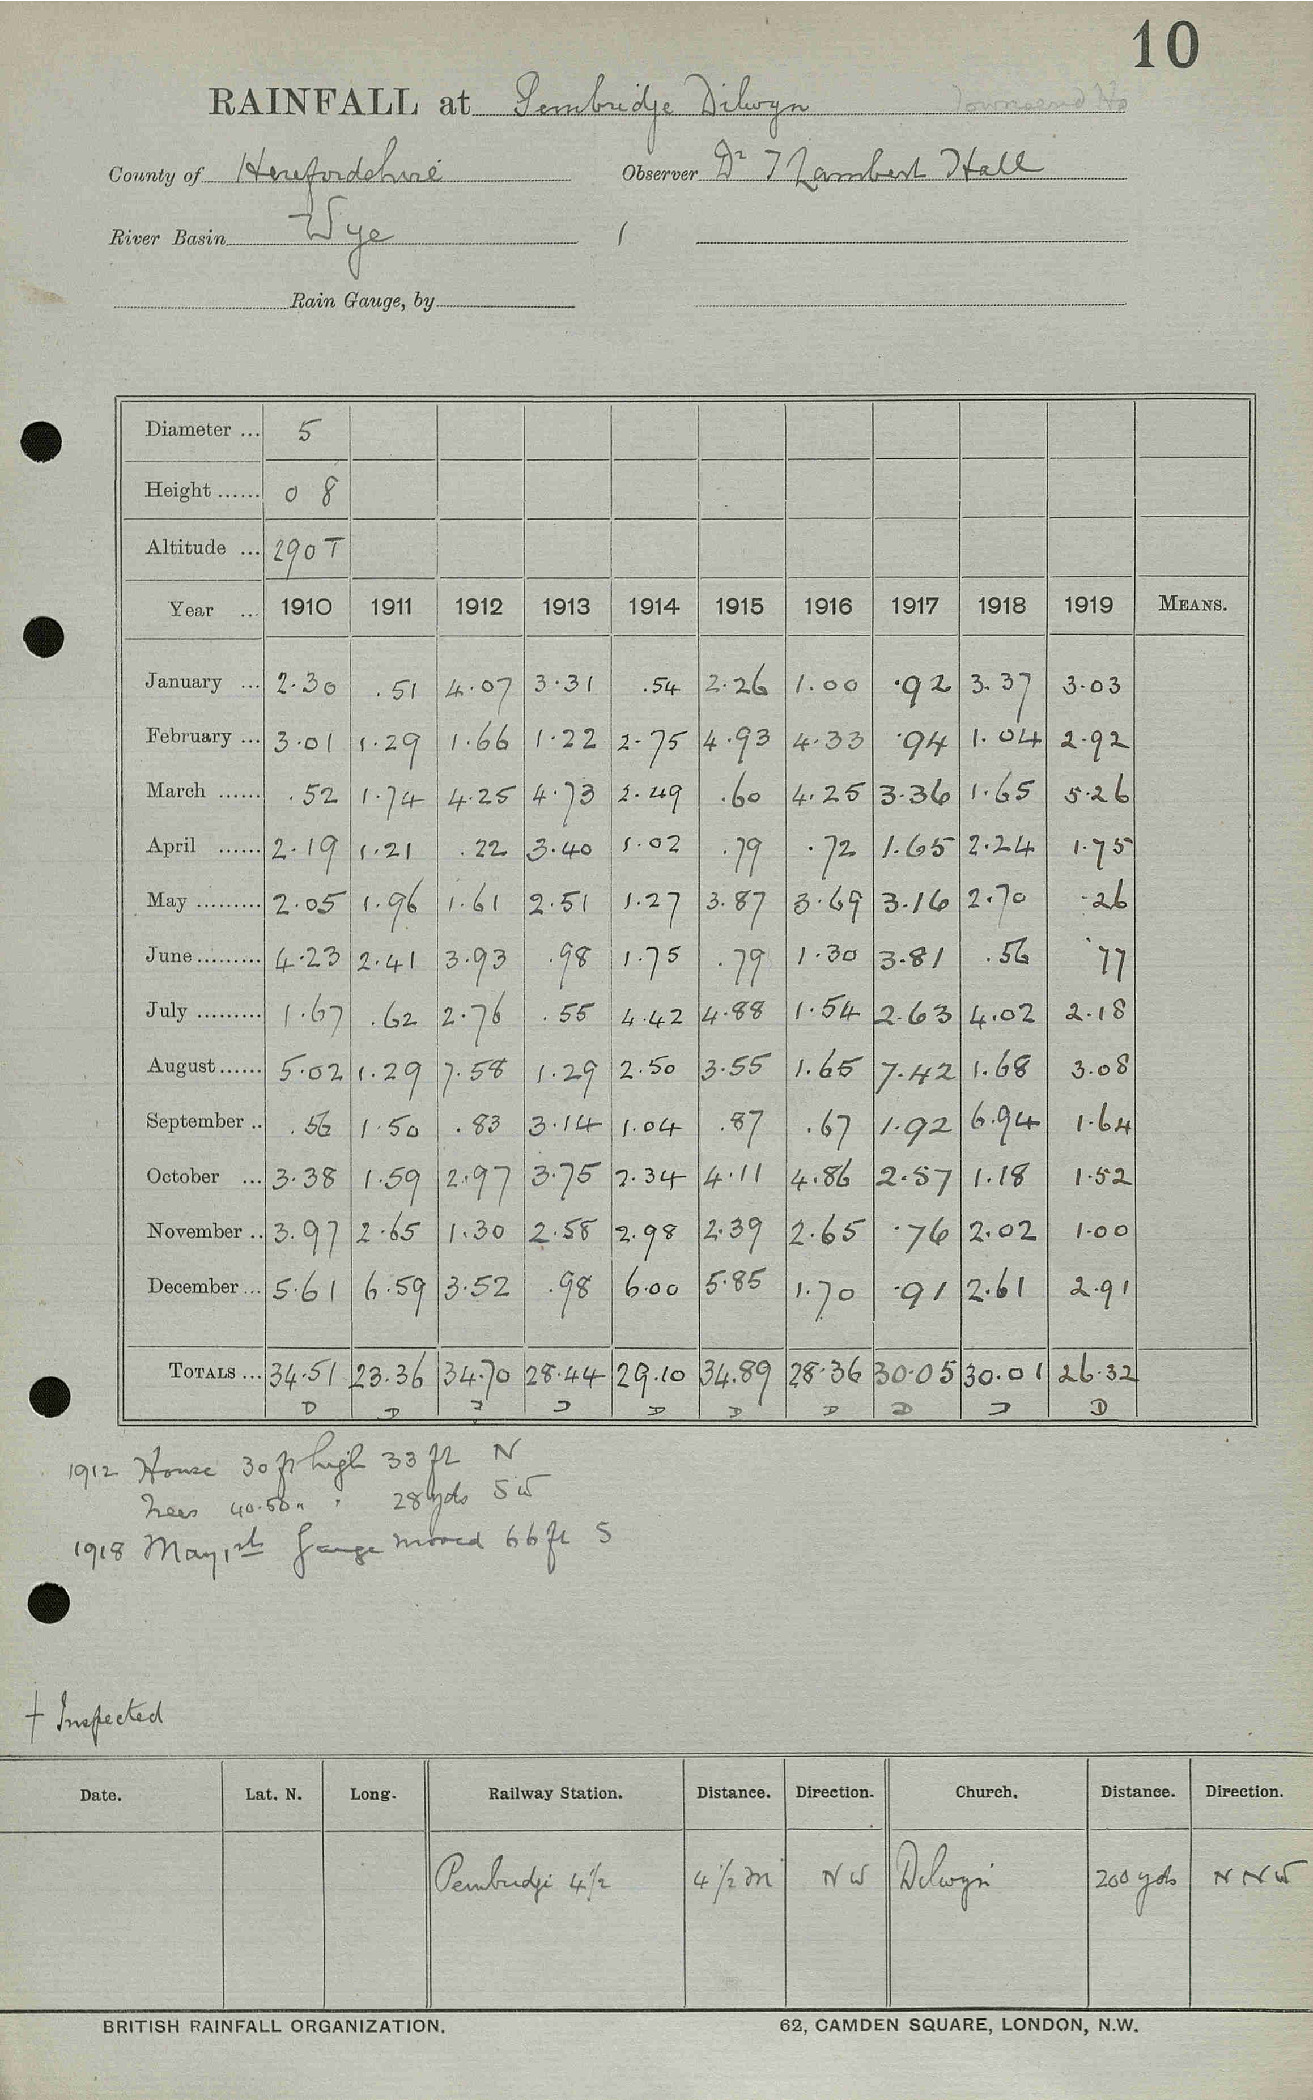 10
RAINFALL at Pembridge Dilwyn Townsend Ho
County of Herefordshire Observer Dr T Lambert Hall
River Basin Wye 1
Rain Gauge, by
Diameter ... 5
Height ...... 0 8
Altitude ... 290 T
Year ... 1910 1911 1912 1913 1914 1915 1916 1917 1918 1919 MEANS.
January ... 2.30 .51 4.07 3.31 .54 2.26 1.00 .92 3.37 3.03
February ... 3.01 1.29 1.66 1.22 2.75 4.93 4.33 .94 1.04 2.92
March ...... .52 1.74 4.25 4.73 2.49 .60 4.25 3.36 1.65 5.26
April ...... 2.19 1.21 .22 3.40 1.02 .79 .72 1.65 2.24 1.75
May ......... 2.05 1.96 1.61 2.51 1.27 3.87 3.69 3.16 2.70 .26
June ......... 4.23 2.41 3.93 .98 1.75 .79 1.30 3.81 .56 .77
July ......... 1.67 .62 2.76 .55 4.42 4.88 1.54 2.63 4.02 2.18
August ...... 5.02 1.29 7.58 1.29 2.50 3.55 1.65 7.42 1.68 3.08
September .. .56 1.50 .83 3.14 1.04 .87 .67 1.92 6.94 1.64
October ... 3.38 1.59 2.97 3.75 2.34 4.11 4.86 2.57 1.18 1.52
November .. 3.97 2.65 1.30 2.58 2.98 2.39 2.65 .76 2.02 1.00
December ... 5.61 6.59 3.52 .98 6.00 5.85 1.70 .91 2.61 2.91
TOTALS ... 34.51 23.36 34.70 28.44 29.10 34.89 28.36 30.05 30.01 26.32
D D D D D D D D D D
1912 House 30 ft high 33 ft N
Trees 40.50 " " 28 yds SW
1918 May 1st Gauge moved 66 ft S
† Inspected
Date. Lat. N. Long. Railway Station. Distance. Direction. Church. Distance. Direction.
Pembridge 4 1/2 4 1/2 m NW Dilwyn 200 yds NNW
BRITISH RAINFALL ORGANIZATION. 62, CAMDEN SQUARE, LONDON, N.W.